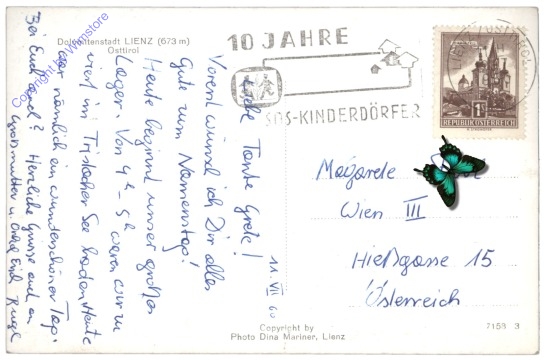 Dolomitenstadt LIENZ (673 m)
Osttirol
Copyright by Wilmstore
10 JAHRE
SOS-KINDERDÖRFER
1S
REPUBLIK ÖSTERREICH
11. VII 60
Liebe Tante Grete!
Vorerst wünsch ich Dir alles
Gute zum Namenstag!
Heute beginnt unser großes
Lager. Von 4h - 5h waren wir zu
viert im Tristacher See baden. Heute
war nämlich ein wunderschöner Tag.
Bei Euch auch? Herzliche Grüsse auch an
Grossmutter u. Onkel
Margarete
Wien III
Hießgasse 15
Österreich
Copyright by
Photo Dina Mariner, Lienz
7153 3